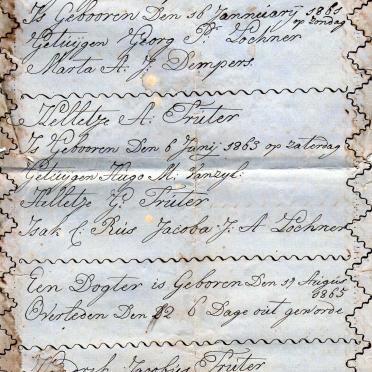 Is Gebooren Den 16 Jannuarij 1861 op zondag
Getuijgen Georg Pr Lochner
Marta A. J Dempers
Helletje A. Trüter
Is Gebooren Den 6 Junij 1863 op zaterdag
Getuijgen Hugo M: Vanzyl:
Helletje G: Trüter
Isak C. Rüs Jacoba J: A Lochner
Een Dogter is Geboren Den 17 Augus 1865
Overleden Den 22 6 Dage out geworde
Jacobus Trüter